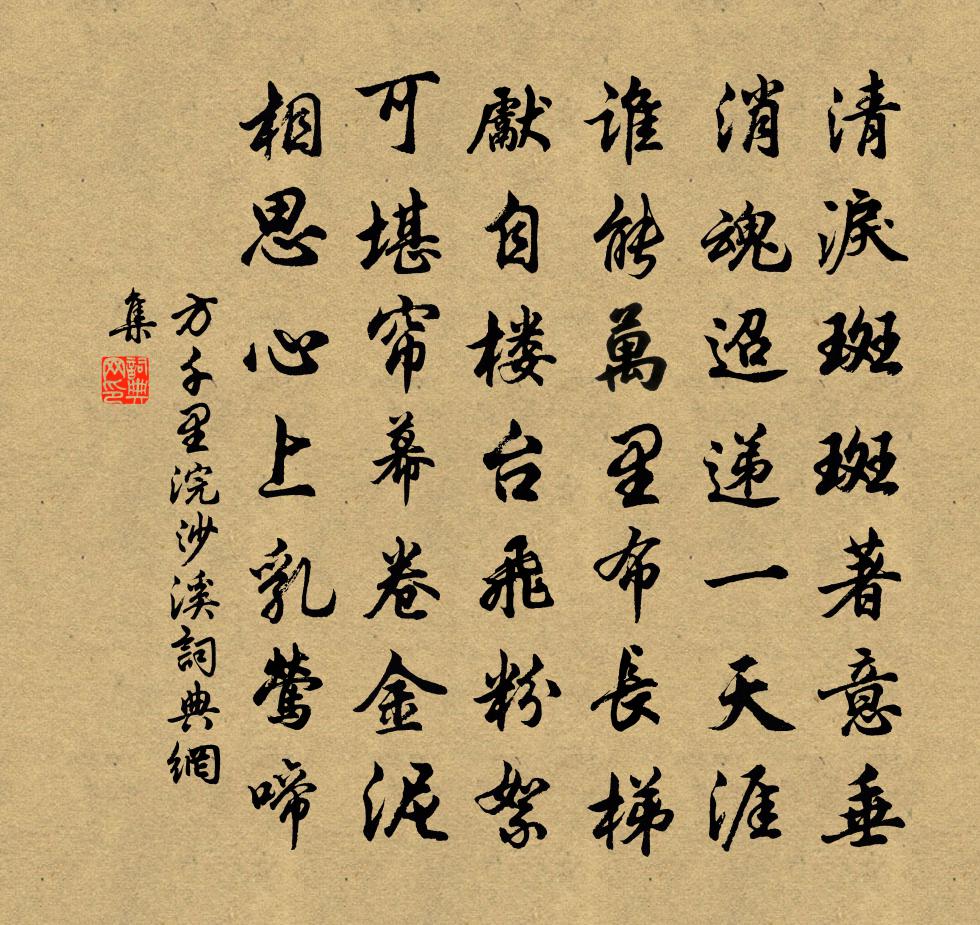 清淚斑斑著意垂
消魂迢递一天涯
谁能萬里布長梯
厭自楼台飛粉絮
可堪帘幕卷金泥
相思心上乳莺啼
方千里浣沙溪詞典網
集
詞典網印